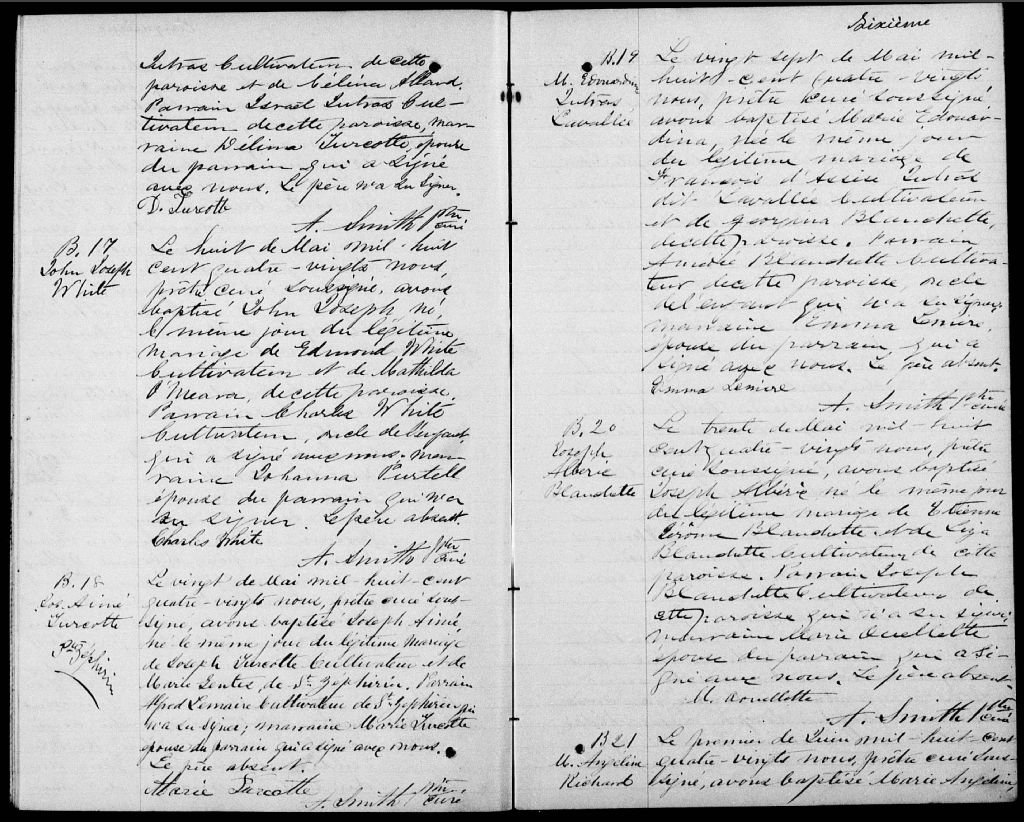 Jutras Cultivateur de cette
paroisse et de Célina Allard.
Parrain Israël Jutras Cul-
tivateur de cette paroisse, mar-
raine Délima Turcotte, épouse
du parrain qui a signé
avec nous. Le père n'a su signer.
D. Turcotte
A. Smith Ptre
Curé
B. 17
John Joseph
White
Le huit de Mai mil-huit
cent quatre-vingts nous,
prêtre curé soussigné, avons
baptisé John Joseph né,
le même jour du légitime
mariage de Edmond White
Cultivateur et de Mathilda
O'Meara, de cette paroisse.
Parrain Charles White
Cultivateur, oncle de l'enfant
qui a signé avec nous. mar-
raine Johanna Purtell
épouse du parrain qui n'a
su signer. Le père absent.
Charles White
A. Smith Ptre
Curé
B. 18
Jos. Aimé
Turcotte
St Zéphirin
Le vingt de Mai mil-huit-cent
quatre-vingts nous, prêtre curé sous-
signé, avons baptisé Joseph Aimé
né le même jour du légitime mariage
de Joseph Turcotte Cultivateur et de
Marie de St. Zéphirin, Parrain
Alfred Lemaire Cultivateur de St. Zéphirin qui
n'a su signer; marraine Marie Turcotte
épouse du parrain qui a signé avec nous.
Le père absent.
Marie Turcotte
A. Smith Ptre
Curé
Sixième
B. 19
M. Edouardina
Jutras
Lavallée
Le vingt sept de Mai mil-
huit-cent quatre-vingts
nous, prêtre curé soussigné,
avons baptisé Marie Edouar-
dina, née le même jour
du légitime mariage de
François d'Assise Jutras
dit Lavallée Cultivateur
et de Georgina Blanchette,
de cette paroisse. Parrain
André Blanchette Cultiva-
teur de cette paroisse oncle
de l'enfant qui n'a su signer,
marraine Emma Lemire,
épouse du parrain qui a
signé avec nous. Le père absent.
Emma Lemire
A. Smith Ptre
Curé
B. 20
Joseph
Albéric
Blanchette
Le trente de Mai mil-huit
cent quatre-vingts nous, prêtre
curé soussigné, avons baptisé
Joseph Albéric né le même jour
du légitime mariage de Etienne
Jérôme Blanchette et de Liza
Blanchette Cultivateur de cette
paroisse. Parrain Joseph
Blanchette Cultivateur de
cette paroisse qui n'a su signer,
marraine Marie Ouellette
épouse du parrain qui a si-
gné avec nous. Le père absent.
M. Ouellette
A. Smith Ptre
Curé
B 21
M. Angelina
Richard
Le premier de Juin mil-huit-cent
quatre-vingts nous, prêtre curé sous-
signé, avons baptisé Marie Angelina,